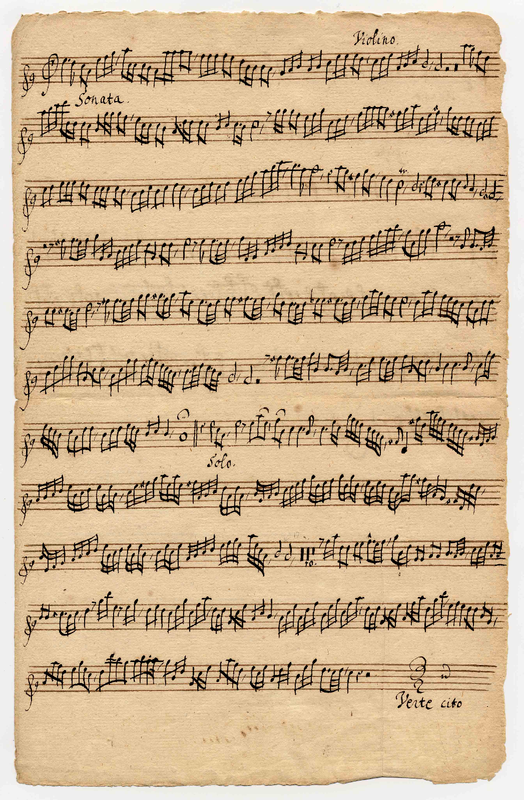 Violino.
Sonata.
Solo.
10.
Verte cito